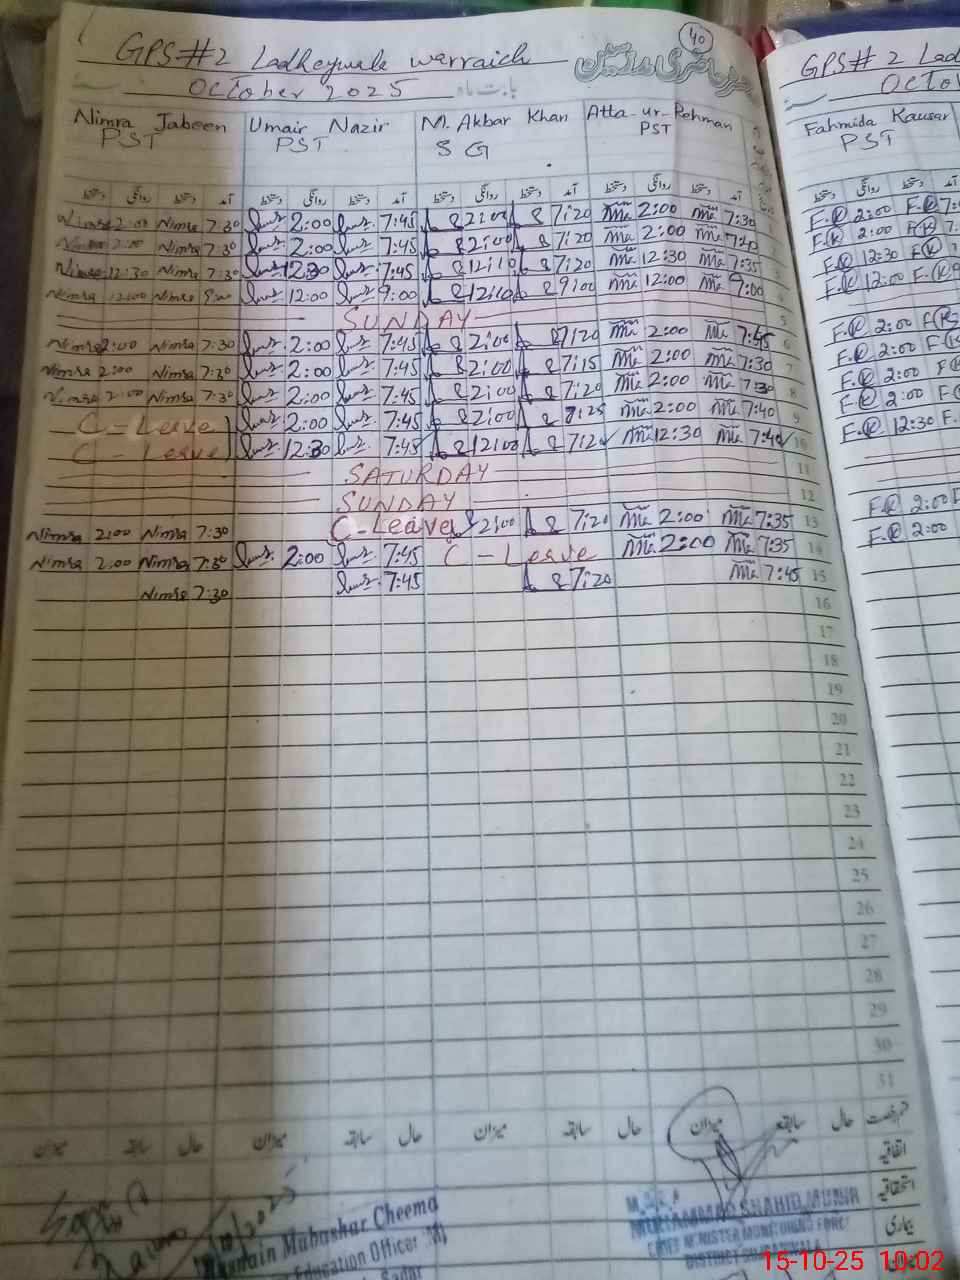 40
GPS#2 Ladheywala warraich
October 2025 بابت ماہ
Nimra Jabeen PST Umair Nazir PST M. Akbar Khan SG Atta-ur-Rehman PST
دستخط روانگی دستخط آمد دستخط روانگی دستخط آمد دستخط روانگی دستخط آمد دستخط روانگی دستخط آمد
Nimra 2:00 Nimra 7:30 2:00 7:45 2:00 7:20 2:00 7:30
Nimra 2:00 Nimra 7:30 2:00 7:45 2:00 7:20 2:00 7:40 2
Nimra 12:30 Nimra 7:30 12:30 7:45 12:10 7:20 12:30 7:35 3
Nimra 12:00 Nimra 9:00 12:00 9:00 12:10 9:00 12:00 9:00 4
SUNDAY 5
Nimra 2:00 Nimra 7:30 2:00 7:45 2:00 7:20 2:00 7:45 6
Nimra 2:00 Nimra 7:30 2:00 7:45 2:00 7:15 2:00 7:30 7
Nimra 2:00 Nimra 7:30 2:00 7:45 2:00 7:20 2:00 7:30 8
C-Leave 2:00 7:45 2:00 7:25 2:00 7:40 9
C-Leave 12:30 7:45 12:00 7:20 12:30 7:40 10
SATURDAY 11
SUNDAY 12
Nimra 2:00 Nimra 7:30 C-Leave 2:00 7:20 2:00 7:35 13
Nimra 2:00 Nimra 7:30 2:00 7:45 C-Leave 2:00 7:35 14
Nimra 7:30 7:45 7:20 7:45 15
16
17
18
19
20
21
22
23
24
25
26
27
28
29
30
31
میزان سابقہ حال میزان سابقہ حال میزان سابقہ حال میزان سابقہ حال قسم رخصت
اتفاقیہ
استحقاقیہ
بیماری
میزان
Mubashar Cheema
Education Officer (M)
Sadar
MUHAMMAD SHAHID MUNIR
CHIEF MINISTER MONITORING FORCE
DISTRICT GUJRANWALA
GPS#2 Lad
Octo
Fahmida Kausar
PST
دستخط روانگی دستخط
F.K 2:00 F.K
F.K 2:00 F.K
F.K 12:30 F.K
F.K 12:00 F.K
F.K 2:00 F.K
F.K 2:00
F.K 2:00
F.K 2:00
F.K 12:30
F.K 2:00
F.K 2:00
15-10-25 10:02